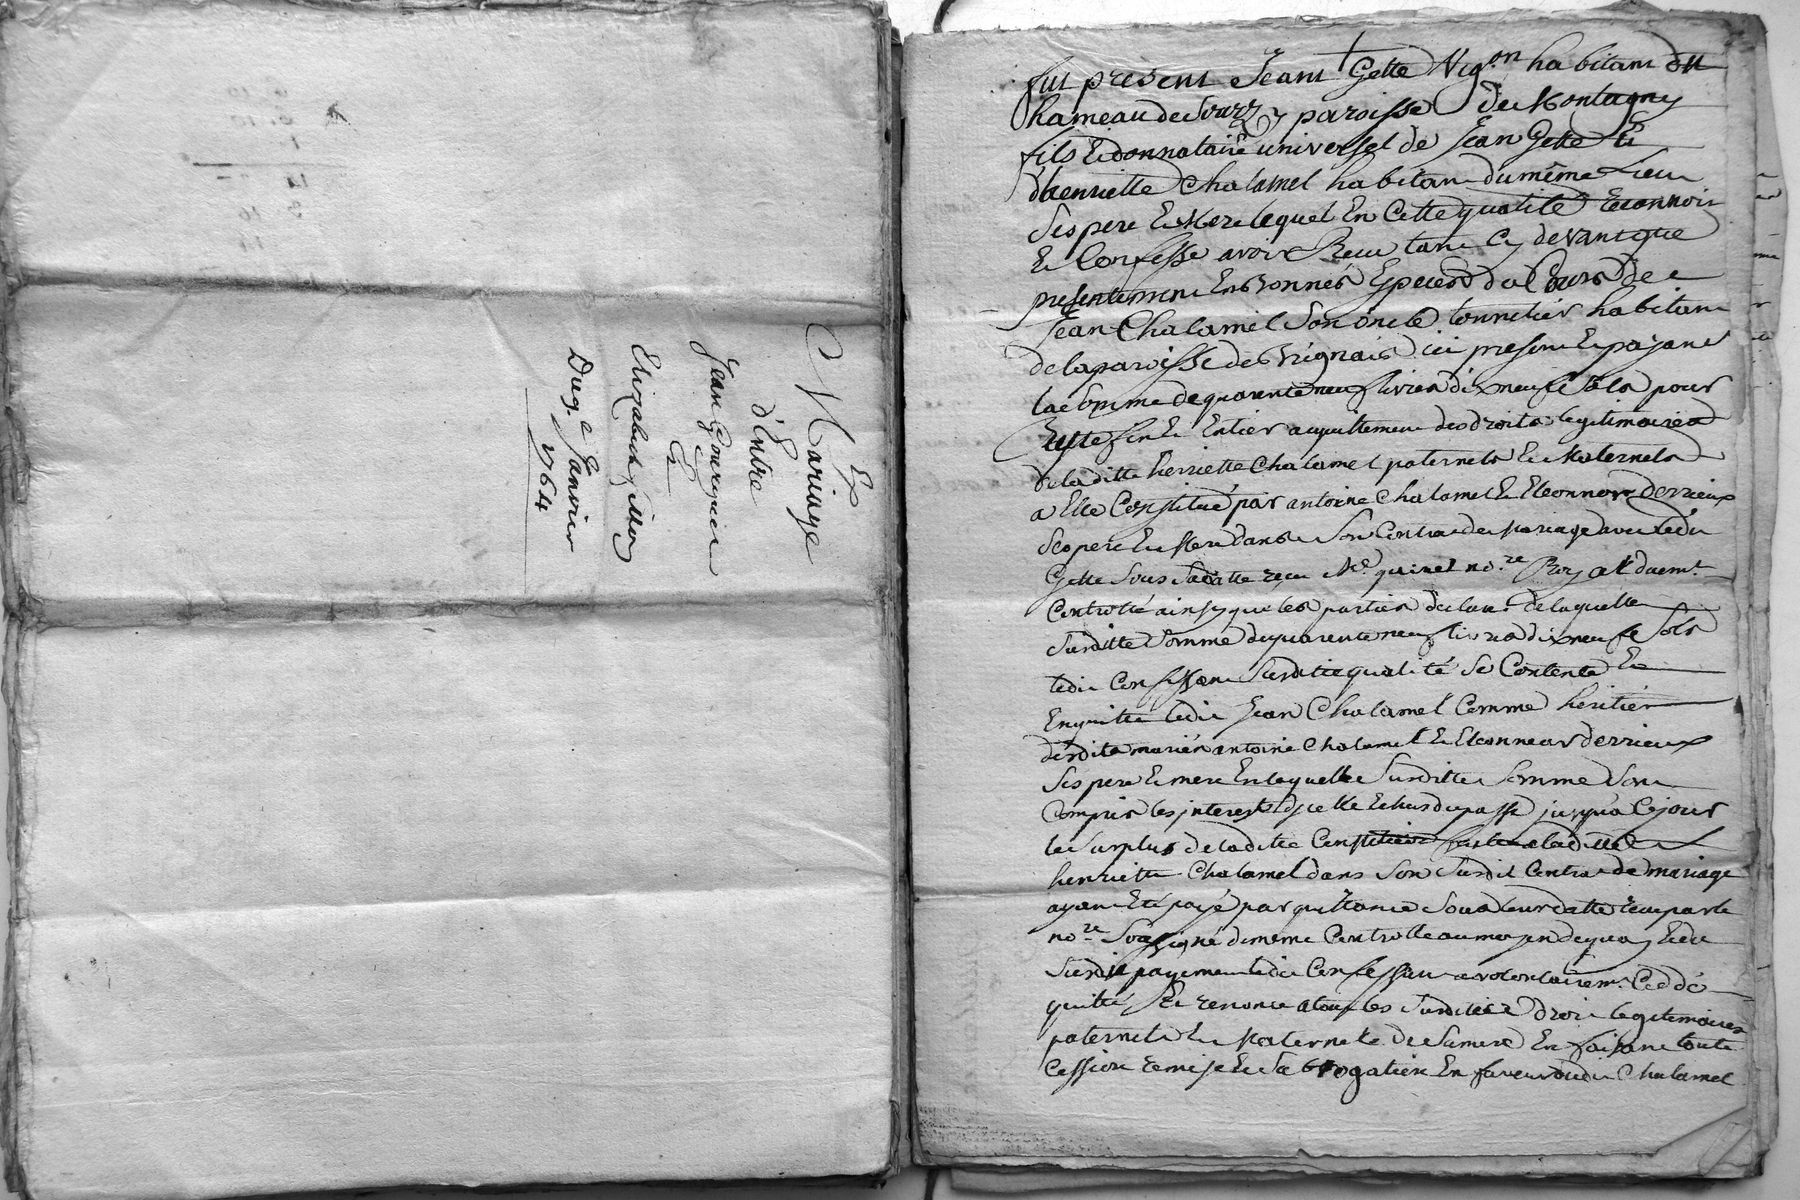 Ex
Mariage
d'Entre
Jean Gourguier
Et
Elizabeth Mory
Du 9.e Janvier
1764
fut present Jean Gette Vig.on habitant du
hameau de Sourzy paroisse de Montagny
fils Et donnataire universel de Jean Gette Et
d'henriette Chalamel habitant du même Lieu
Ses pere Et Mere lequel En Cette qualité Reconnoit
Et Confesse avoir Reçu tant Cy devant que
presentement En bonnes Especes du Cours de
Jean Chalamel Son oncle tonnelier habitant
de la paroisse de Vrignais ici present Et payant
la Somme de quarente neuf livres dix neuf Sols pour
Reste fin Et Entier acquittement des droits legitimaires
de laditte henriette Chalamel paternels Et Maternels
a Elle Constitué par antoine Chalamel Et Eleonnor Derrieux
Ses pere Et Mere dans Son Contrat de Mariage avec ledit
Gette Sous Sa datte reçu M.e quinet no.re Royal duem.t
Controllé ainsy que les parties de laquelle
Surditte Somme de quarente neuf livres dix neuf Sols
ledit Confessant Surditte qualité Se Contente Et
En quitte ledit Jean Chalamel Comme héritier
desdits mariés antoine Chalamel Et Eleonnor derrieux
Ses pere Et mere En laquelle Surditte Somme Sont
Compris les interests d'jcelle Echus du passé jusqu'a Ce jour
le Surplus de laditte Constitution faitte a laditte
henriette Chalamel dans Son Surdit Contrat de mariage
ayant Eté payé par quittance Sous leur datte reçu par le
no.re Soussigné de meme Controllé au moyen de quoy Et du
Surdit payement ledit Confessant a volontairem.t Cedé
quitté Et renoncé a tous les Surdittes droits legitimaires
paternels Et Maternels de Sa mere En faisant toute
Cession remise Et Subrogation En faveur dudit Chalamel